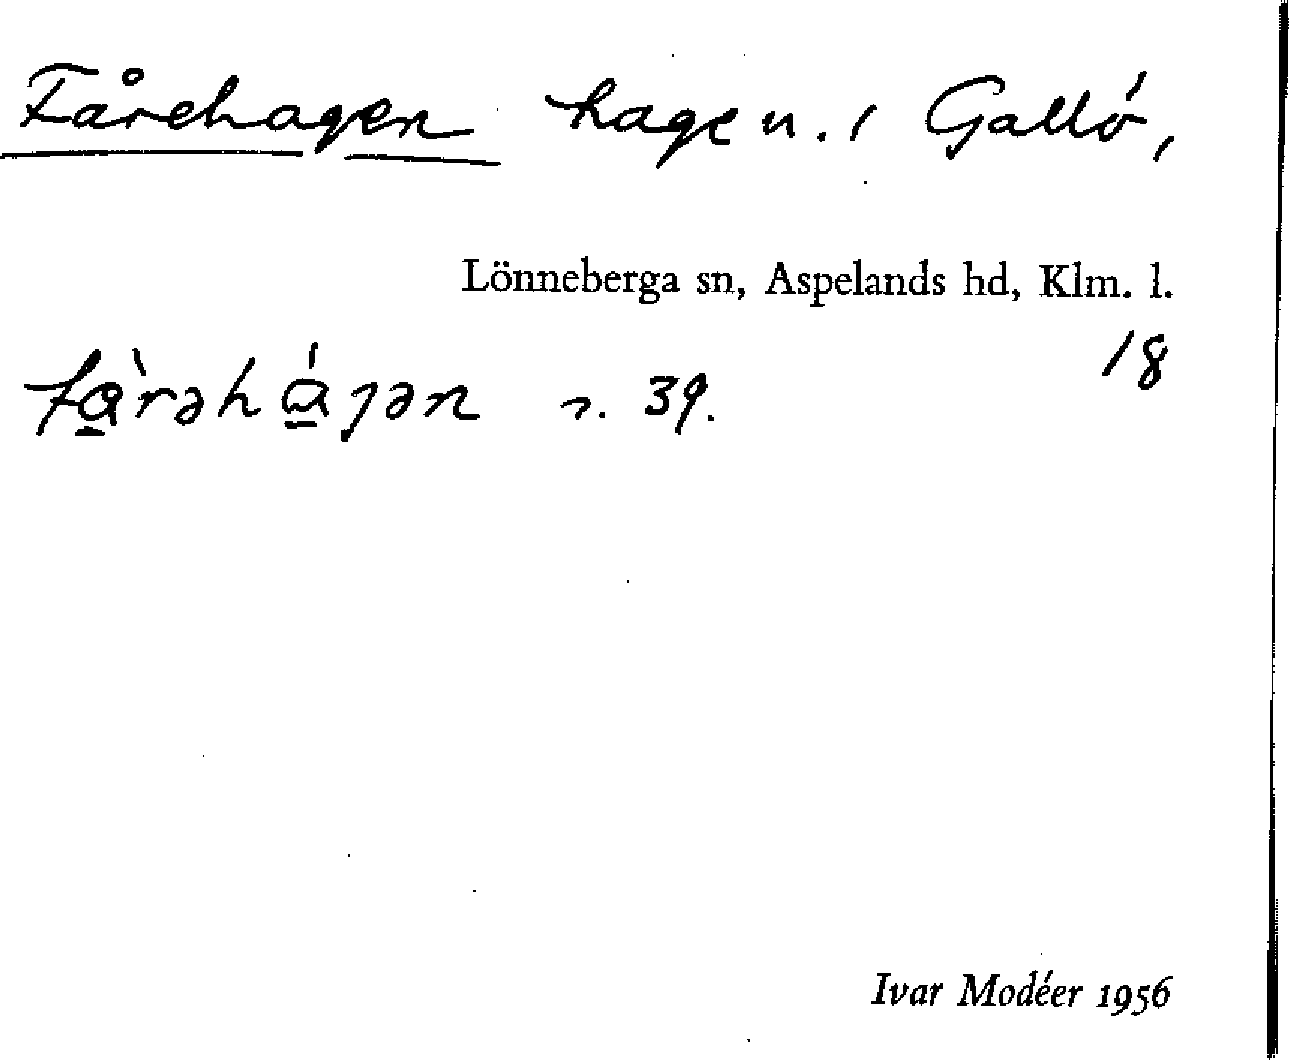 Fårehagen hage n. i Gallö,
Lönneberga sn, Aspelands hd, Klm. l.
18
n. 39.
Ivar Modéer 1956